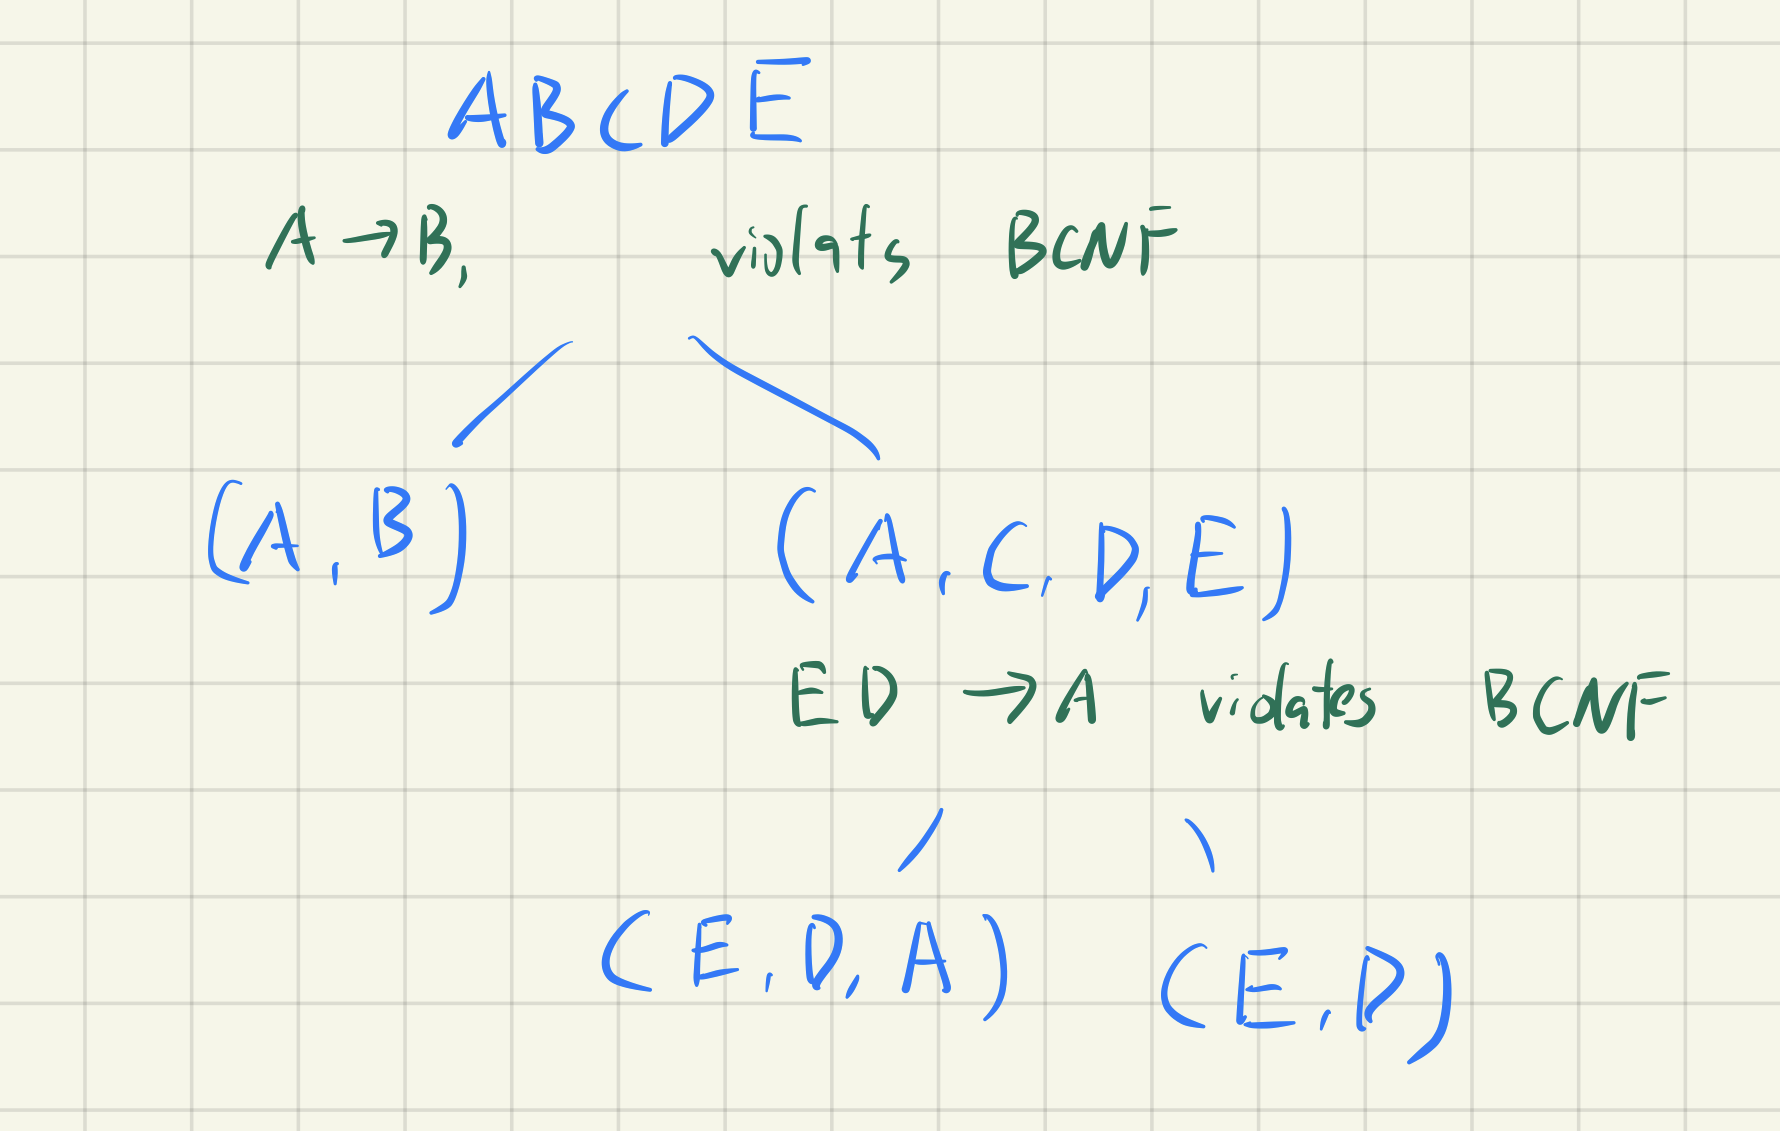 ABCDE
A → B, violats BCNF
(A, B) (A, C, D, E)
ED → A violates BCNF
(E, D, A) (E, D)